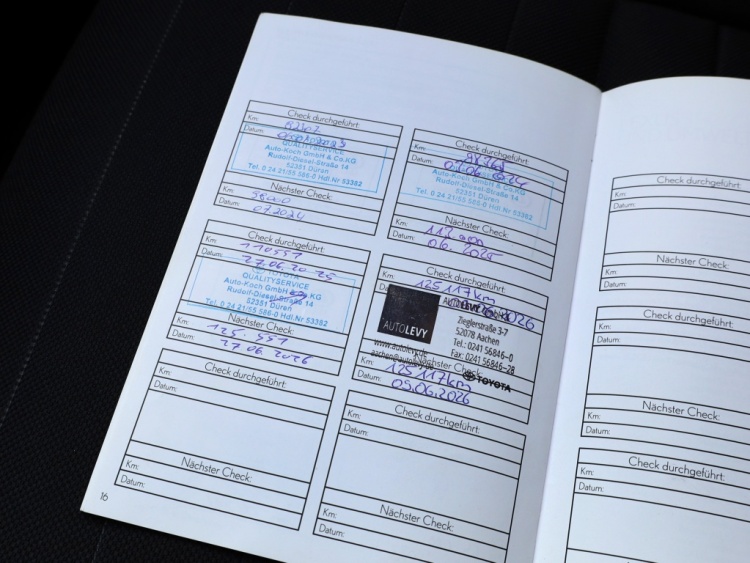 Check durchgeführt:
Km:
Datum:
QUALITYSERVICE
Auto-Koch GmbH & Co.KG
Rudolf-Diesel-Straße 14
52351 Düren
Tel. 0 24 21/55 586-0 Hdl.Nr 53382
Nächster Check:
Km:
Datum: 07.2024
Check durchgeführt:
Km:
Datum:
QUALITYSERVICE
Auto-Koch GmbH & Co.KG
Rudolf-Diesel-Straße 14
52351 Düren
Tel. 0 24 21/55 586-0 Hdl.Nr 53382
Nächster Check:
Km:
Datum: 06.2025
Check durchgeführt:
Km: 110557
Datum: 27.06.2025
TOYOTA
QUALITYSERVICE
Auto-Koch GmbH & Co.KG
Rudolf-Diesel-Straße 14
52351 Düren
Tel. 0 24 21/55 586-0 Hdl.Nr 53382
Nächster Check:
Km: 125.557
Datum: 27.06.2026
Check durchgeführt:
Km: 125 117km
Datum:
AUTOLEVY
Zieglerstraße 3-7
52078 Aachen
Tel.: 0241 56846-0
Fax: 0241 56846-28
www.autolevy.de
Nächster Check:
Km: 125 117km
Datum: 05.06.2026
TOYOTA
Check durchgeführt:
Datum:
Nächster Check:
Km:
Datum:
Check durchgeführt:
Km:
Datum:
Nächster Check:
Km:
Datum:
16
Check durchgeführt:
Km:
Datum:
Nächster Check:
Km:
Datum:
Check durchgeführt:
Km:
Datum:
Nächster Check:
Km:
Datum:
Check durchgeführt:
Km:
Datum: